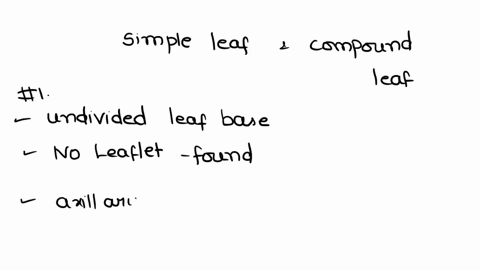 simple leaf & compound
leaf
#1.
- undivided leaf base
- No Leaflet - found
- axillari